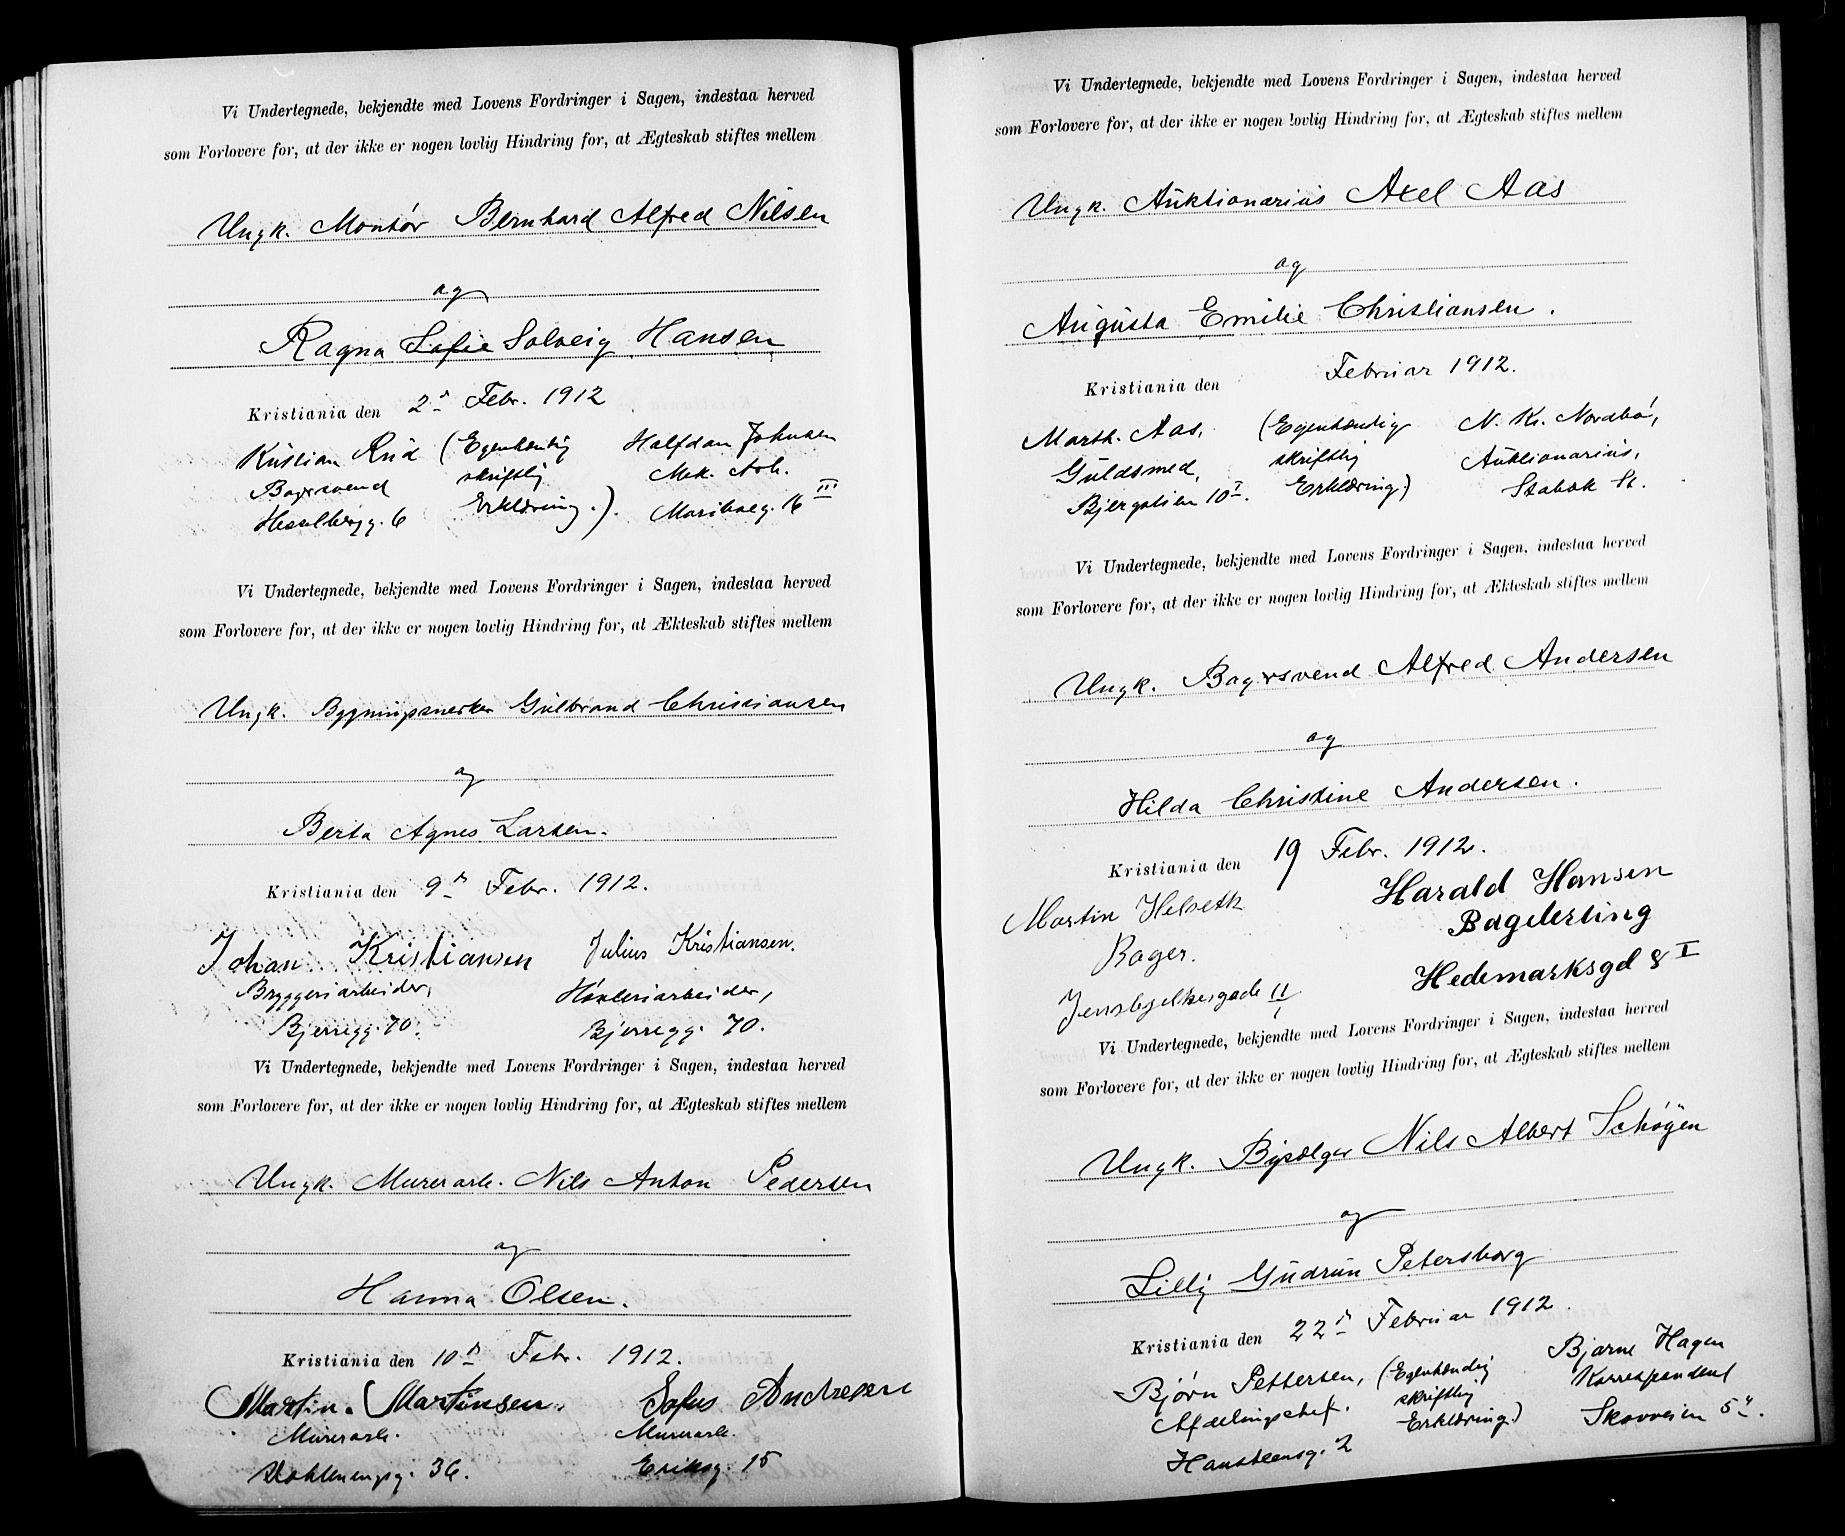 Vi Undertegnede, bekjendte med Lovens Fordringer i Sagen, indestaa herved
som Forlovere for, at der ikke er nogen lovlig Hindring for, at Ægteskab stiftes mellem
Ungk. Montør Bernhard Alfred Nilsen
og
Ragna Sofie Solveig Hansen
Kristiania den 2den Febr. 1912
Kristian Rud (Egenhændig Halfdan Johnsen
Bagersvend skriftlig Mek. Arb.
Hesselbergg. 6 Erklæring.). Mariboeg. 16 III
Vi Undertegnede, bekjendte med Lovens Fordringer i Sagen, indestaa herved
som Forlovere for, at der ikke er nogen lovlig Hindring for, at Ækteskab stiftes mellem
Ungk. Bygningssnekker Gulbrand Christiansen
og
Berta Agnes Larsen.
Kristiania den 9de Febr. 1912.
Johan Kristiansen Julius Kristiansen.
Bryggeriarbeider, Høvleriarbeider,
Bjerregg. 70. Bjerregg. 70.
Vi Undertegnede, bekjendte med Lovens Fordringer i Sagen, indestaa herved
som Forlovere for, at der ikke er nogen lovlig Hindring for, at Ægteskab stiftes mellem
Ungk. Murerarb. Nils Anton Pedersen
og
Hanna Olsen.
Kristiania den 10de Febr. 1912.
Martin Martinsen. Sofus Andresen
Murerarb. Murerarb.
36. Eriksg. 15
Vi Undertegnede, bekjendte med Lovens Fordringer i Sagen, indestaa herved
som Forlovere for, at der ikke er nogen lovlig Hindring for, at Ægteskab stiftes mellem
Ungk. Auktionarius Axel Aas
og
Augusta Emilie Christiansen.
Kristiania den Februar 1912.
Marth. Aas, (Egenhændig N. Kr. Nordbø,
Guldsmed, skriftlig Auktionarius,
10 I. Erklæring) Stabæk St.
Vi Undertegnede, bekjendte med Lovens Fordringer i Sagen, indestaa herved
som Forlovere for, at der ikke er nogen lovlig Hindring for, at Ækteskab stiftes mellem
Ungk. Bagersvend Alfred Andersen
og
Hilda Christine Andersen.
Kristiania den 19 Febr. 1912.
Martin Helseth Harald Hansen
Bager. Bagelerling
Jensbjelkesgade 11 Hedemarksgd 8 I
Vi Undertegnede, bekjendte med Lovens Fordringer i Sagen, indestaa herved
som Forlovere for, at der ikke er nogen lovlig Hindring for, at Ægteskab stiftes mellem
Ungk. Bysælger Nils Albert Schøyen
og
Lilly Gudrun Petersborg
Kristiania den 22de Februar 1912.
Bjørn Pettersen, (Egenhændig Bjarne Hagen
Afdelingschef. skriftlig Korrespondent
Hansteensg. 2 Erklæring.) Skovveien 5